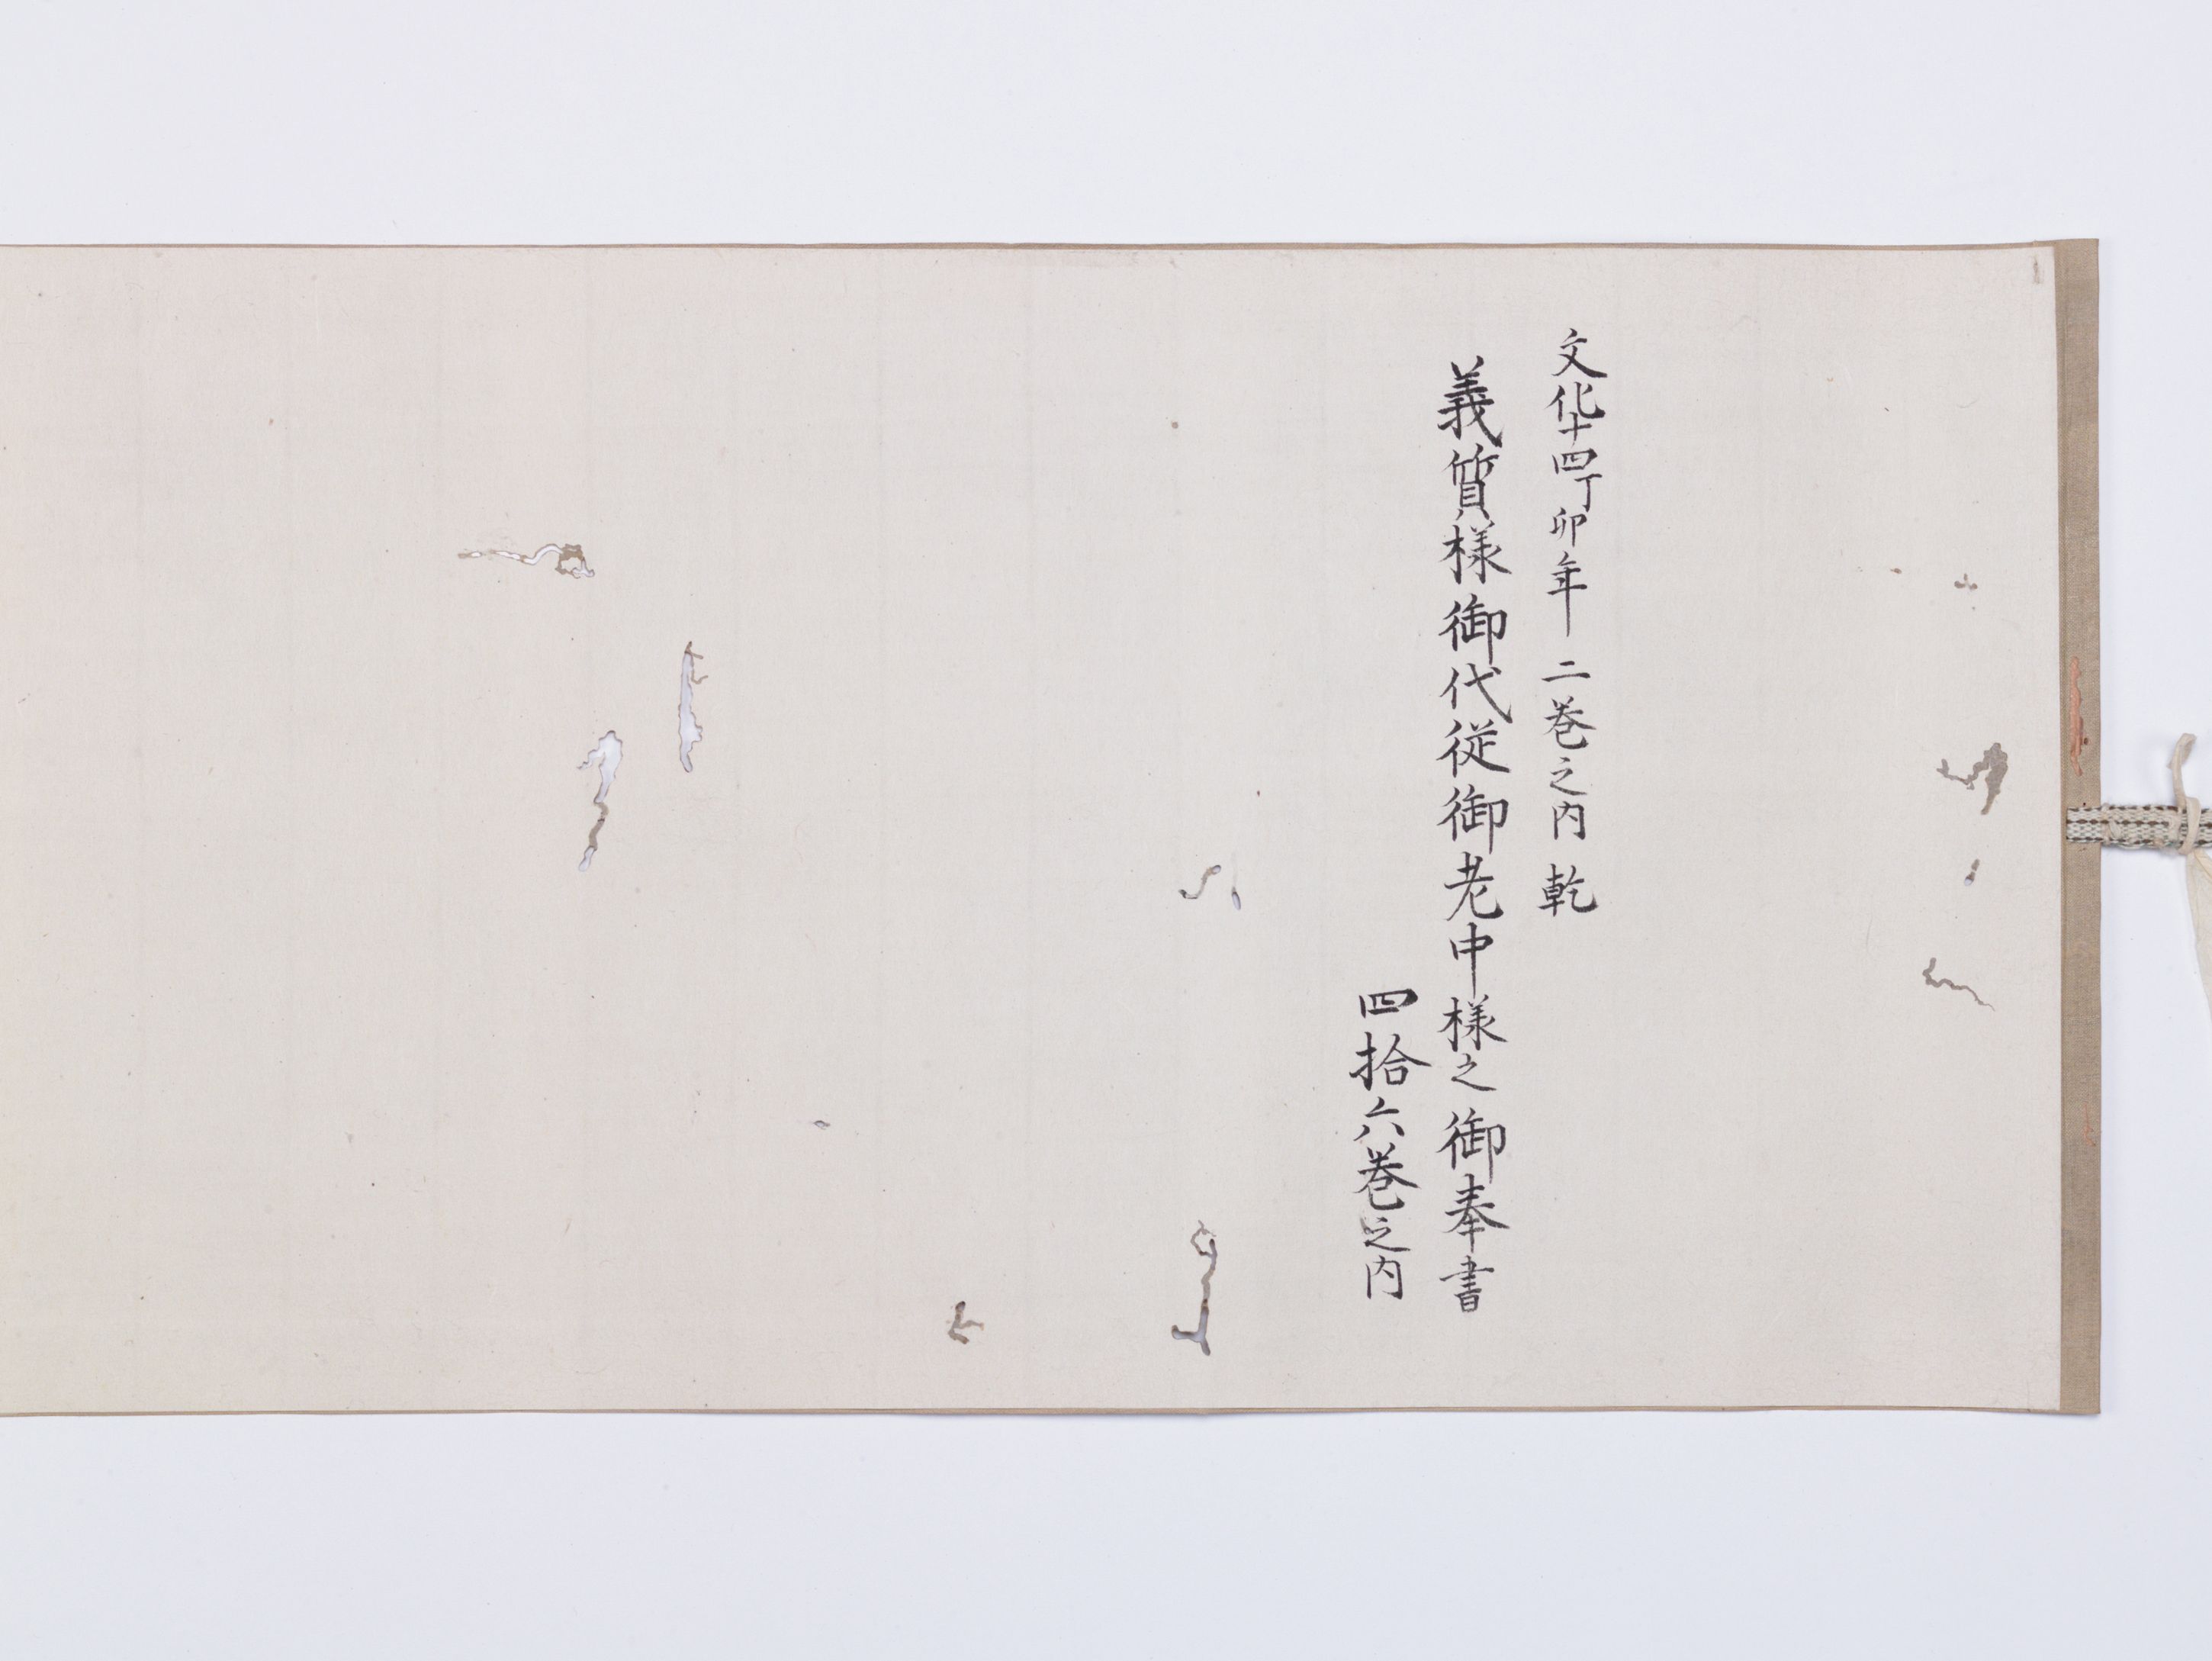 文化十四丁卯年 二巻之内 乾
義質様御代従御老中様之御奉書
四拾六巻之内